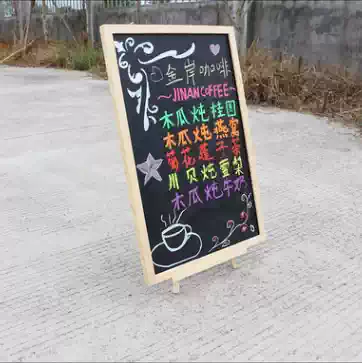 金岸咖啡
~JINAN COFFEE~
木瓜炖桂圆
木瓜炖燕窝
菊花莲子茶
川贝炖雪梨
木瓜炖牛奶